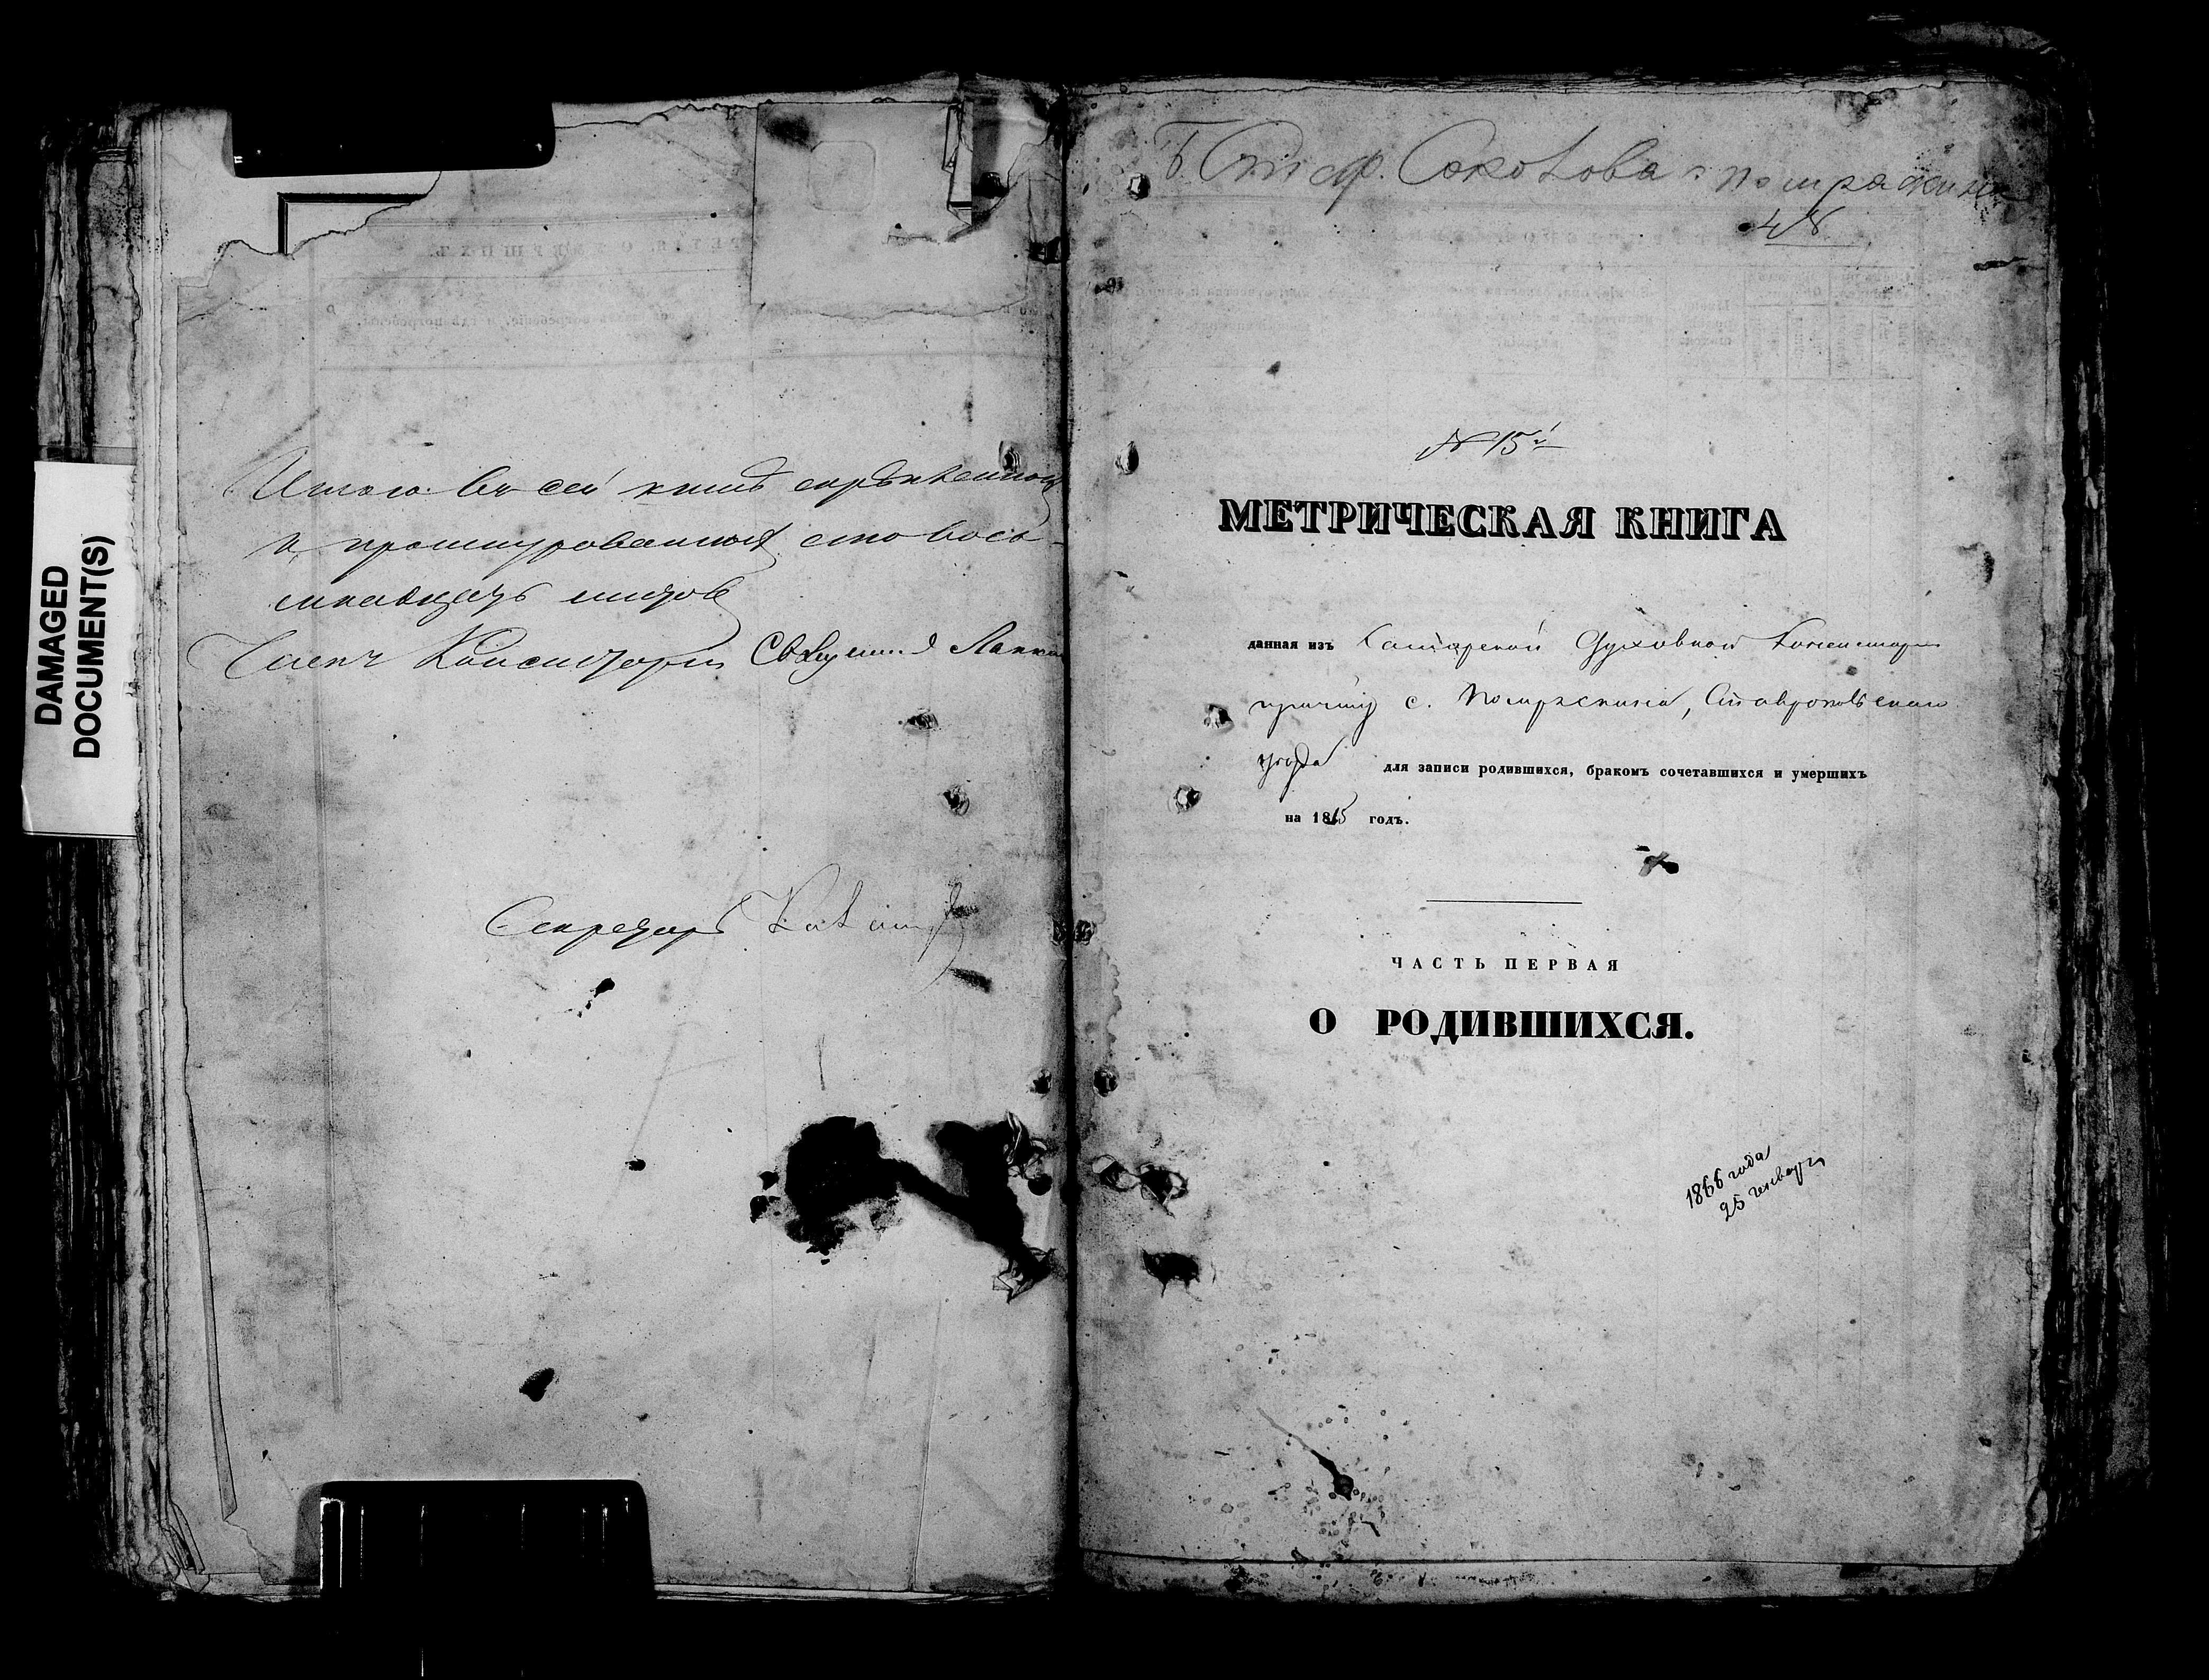 DAMAGED
DOCUMENT(S)
Итого въ сей книгѣ скрѣпленной
и прошнурованной сто восе-
мнадцать листовъ
Членъ Консисторіи Священникъ
Секретарь
Соколова с Помряскина
48
№ 15й
МЕТРИЧЕСКАЯ КНИГА
данная изъ Самарской Духовной Консисторіи
причту с. Помряскина, Ставропольскаго
уѣзда для записи родившихся, бракомъ сочетавшихся и умершихъ
на 1865 годъ.
ЧАСТЬ ПЕРВАЯ
О РОДИВШИХСЯ.
1866 года
25 генваря